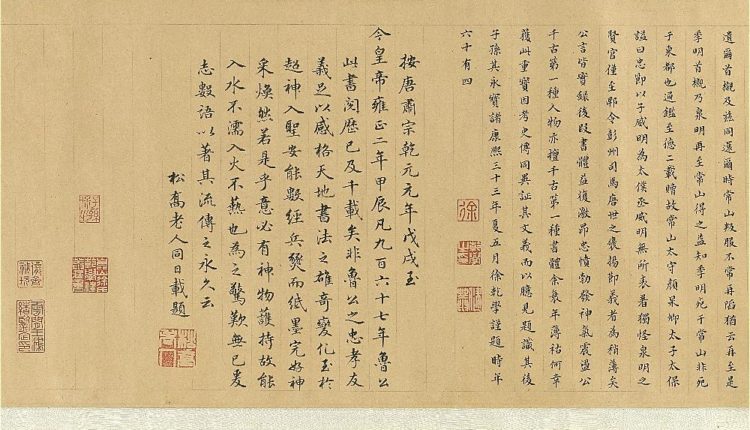 遺爾首櫬及茲同還爾時常山叛服不常再陷猶云再至是
季明首櫬乃泉明再至常山得之益知季明死于常山非死
于東都也通鑑至德二載贈故常山太守顏杲卿太子太保
謚曰忠節以子威明為太僕丞威明無所表著獨怪泉明之
賢官僅至郫令彭州司馬唐世之褒揚節義者為稍薄矣
公言皆實錄後段書體益復激昂忠憤勃發神氣震盪公
千古第一種人物亦擅千古第一種書體余衰年薄祜何幸
獲此重寶因考史傳同異証其文義而以臆見題識其後
子孫其永寶諸康熙三十三年夏五月徐乾學謹題時年
六十有四
按唐肅宗乾元元年戊戌至
今皇帝雍正二年甲辰凡九百六十七年魯公
此書閱歷已及千載矣非魯公之忠孝友
義足以感格天地書法之雄奇變化至於
超神入聖安能數經兵燹而紙墨完好神
采煥然若是乎意必有神物護持故能
入水不濡入火不爇也為之驚歎無已爰
志數語以著其流傳之永久云
松喬老人同日載題